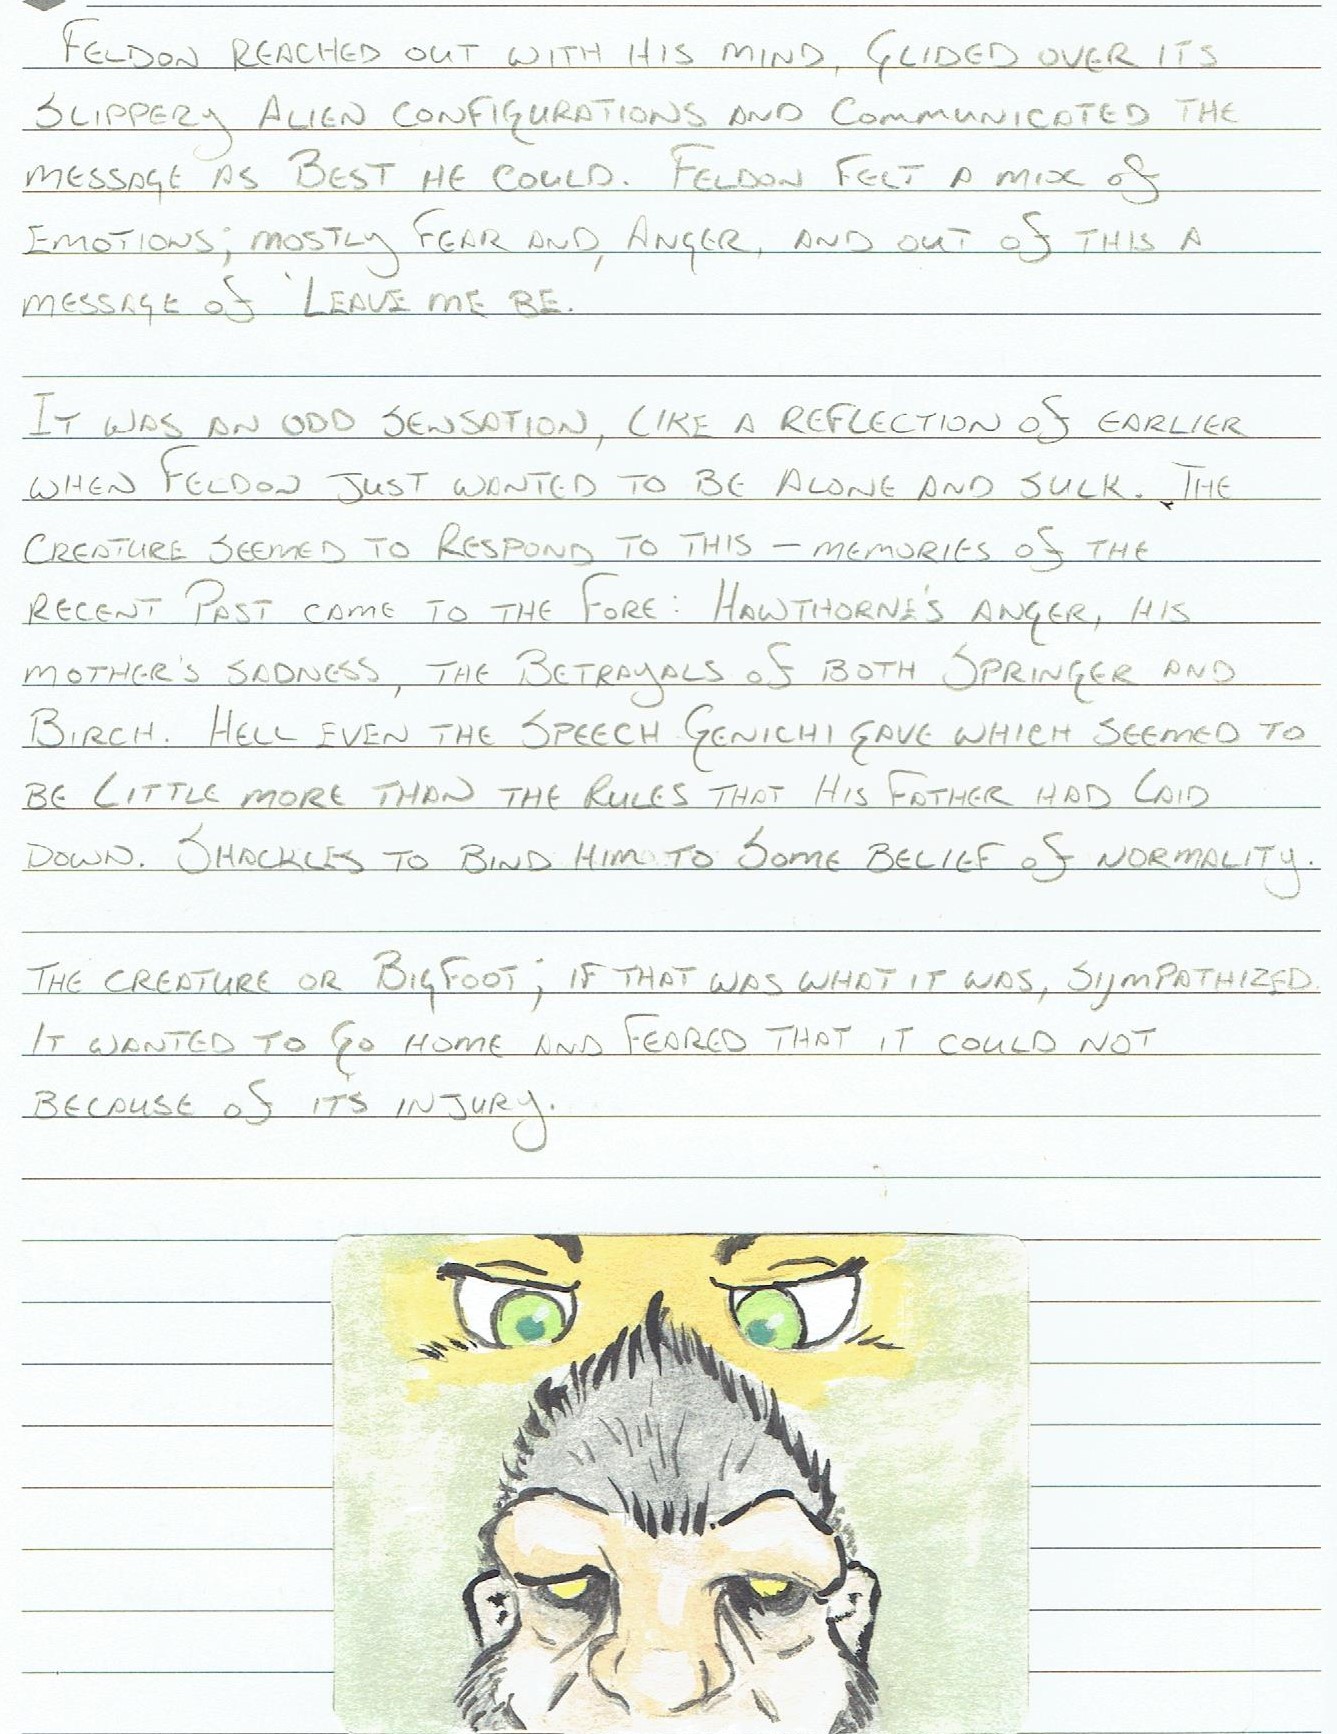 Feldon reached out with his mind, glided over its
slippery alien configurations and communicated the
message as best he could. Feldon felt a mix of
emotions; mostly fear and, anger, and out of this a
message of 'Leave me be.
It was an odd sensation, like a reflection of earlier
when Feldon just wanted to be alone and sulk. The
creature seemed to respond to this – memories of the
recent past came to the fore: Hawthorne's anger, his
mother's sadness, the betrayals of both Springer and
Birch. Hell even the speech Genichi gave which seemed to
be little more than the rules that his father had laid
down. Shackles to bind him to some belief of normality.
The creature or Bigfoot; if that was what it was, sympathized.
It wanted to go home and feared that it could not
because of it's injury.